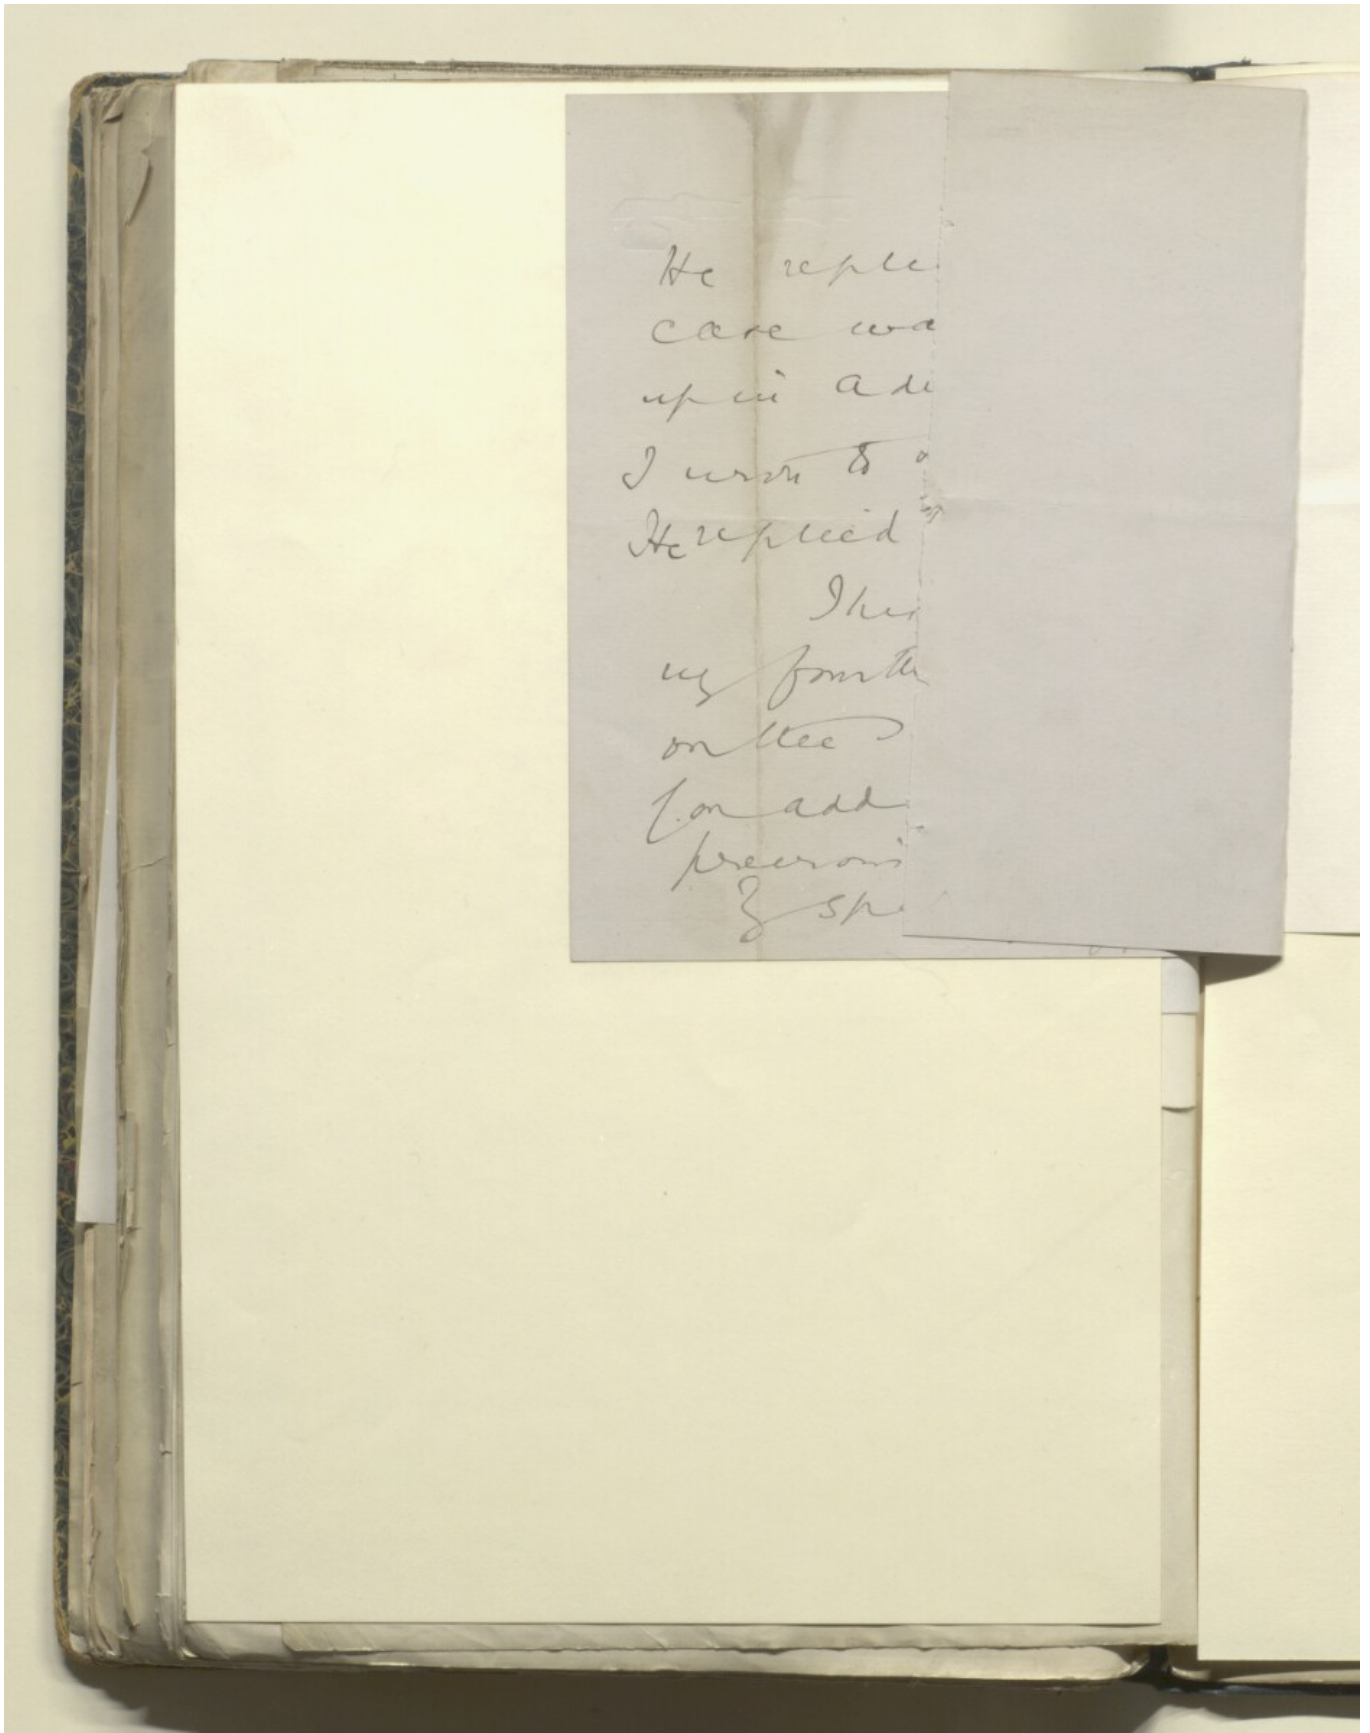 He replie
case wa
up in Ade
I wrote to
He replied
I he
my fourth
on the
for add
previous
Z spe